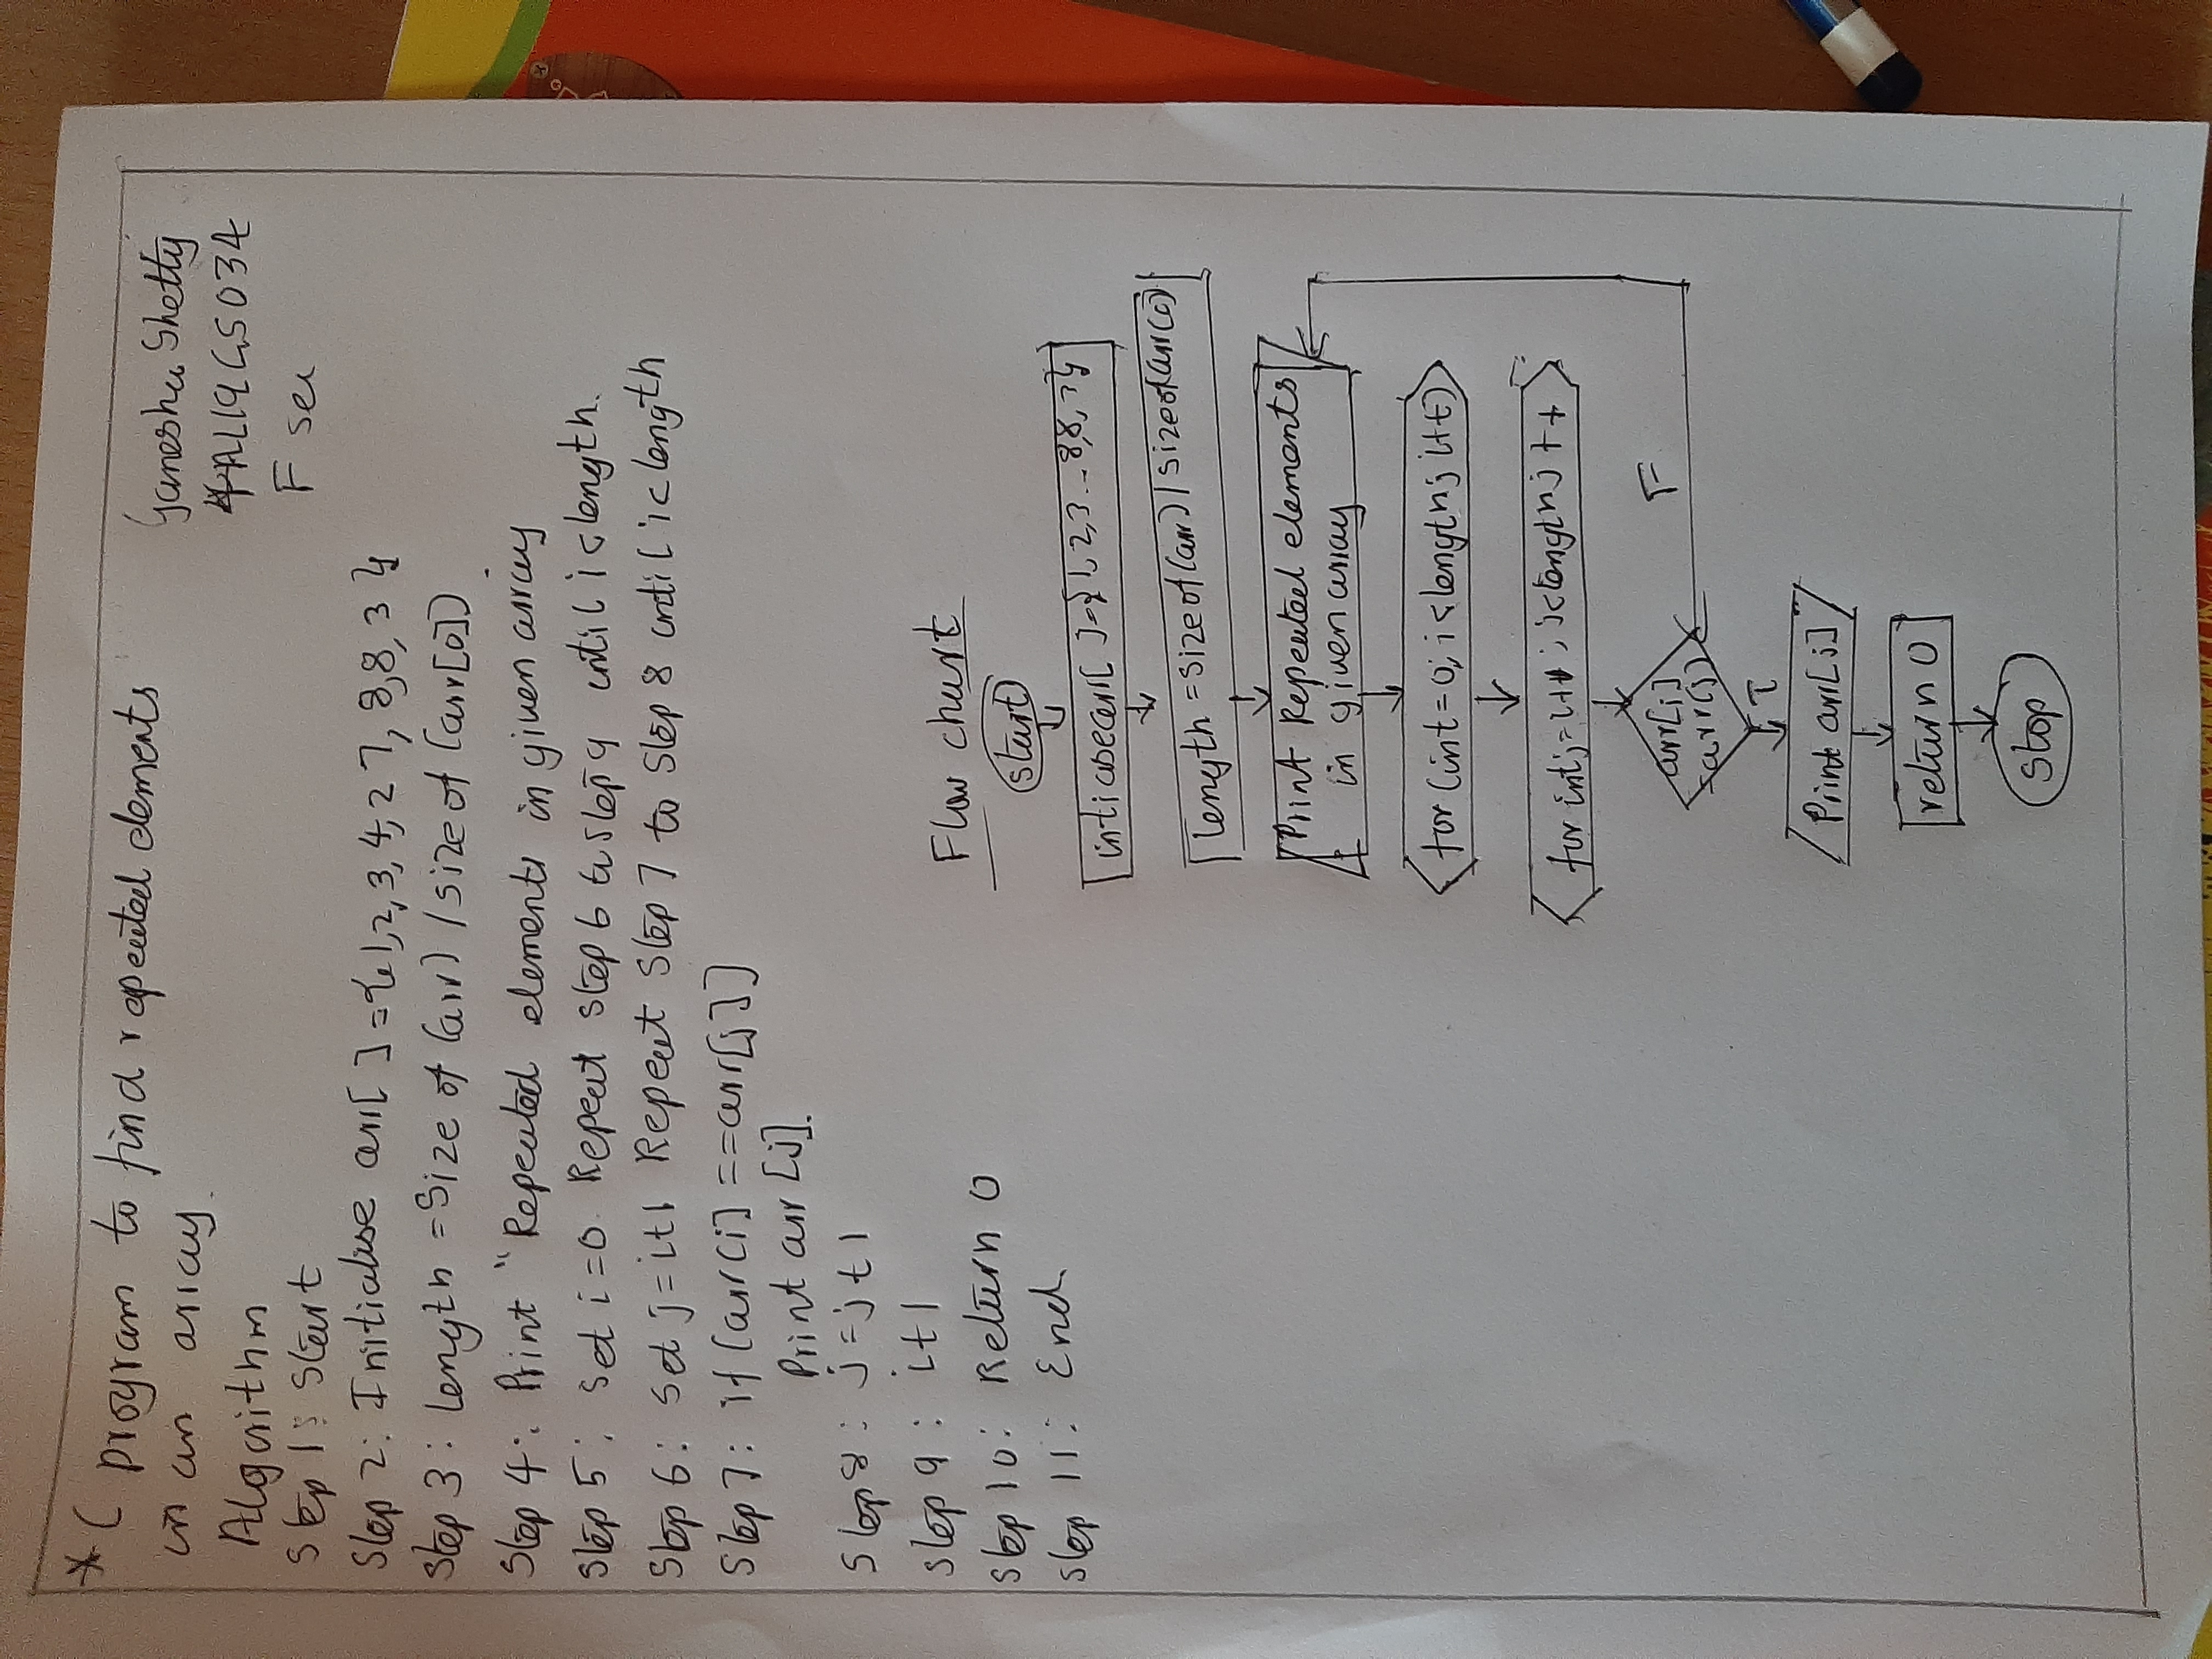 * C program to find repeated elements
in an array.
Ganesha Shetty
4AL19CS034
F sec
Algorithm
Step 1: Start
Step 2: Initialise arr[ ] = {1,2,3,4,2 7, 8,8, 3 };
Step 3: length = Size of (arr) / size of (arr[0])
Step 4: Print "Repeated elements in given array
Step 5: Set i=0. Repeat step 6 to step 9 until i<length.
Step 6: Set j=i+1 Repeat Step 7 to Step 8 until i<length
Step 7: if (arr(i] ==arr[j])
Print arr [j].
Step 8: j=j+1
Step 9: i+1
Step 10: Return 0
Step 11: End.
Flow chart
Start
arr[ ]={1,2,3...8,8,3};
length =Size of (arr) / size of (arr(0)
Print Repeated elements
in given array
for (int=0; i<length; i++)
for int j=i+1; j<length j++
arr[i]
=arr(j)
F
T
Print arr[j]
return 0
Stop